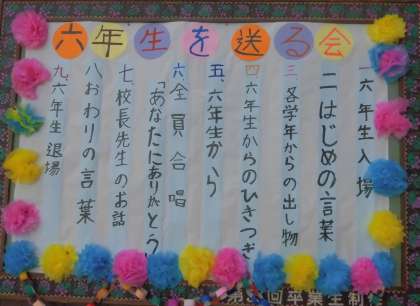 六年生を送る会
一 六年生入場
二 はじめの言葉
三、各学年からの出し物
四 六年生からのひきつぎ
五、六年生から
六 全員合唱
「あなたにありがとう」
七、校長先生のお話
八 おわりの言葉
九、六年生退場
回卒業生制